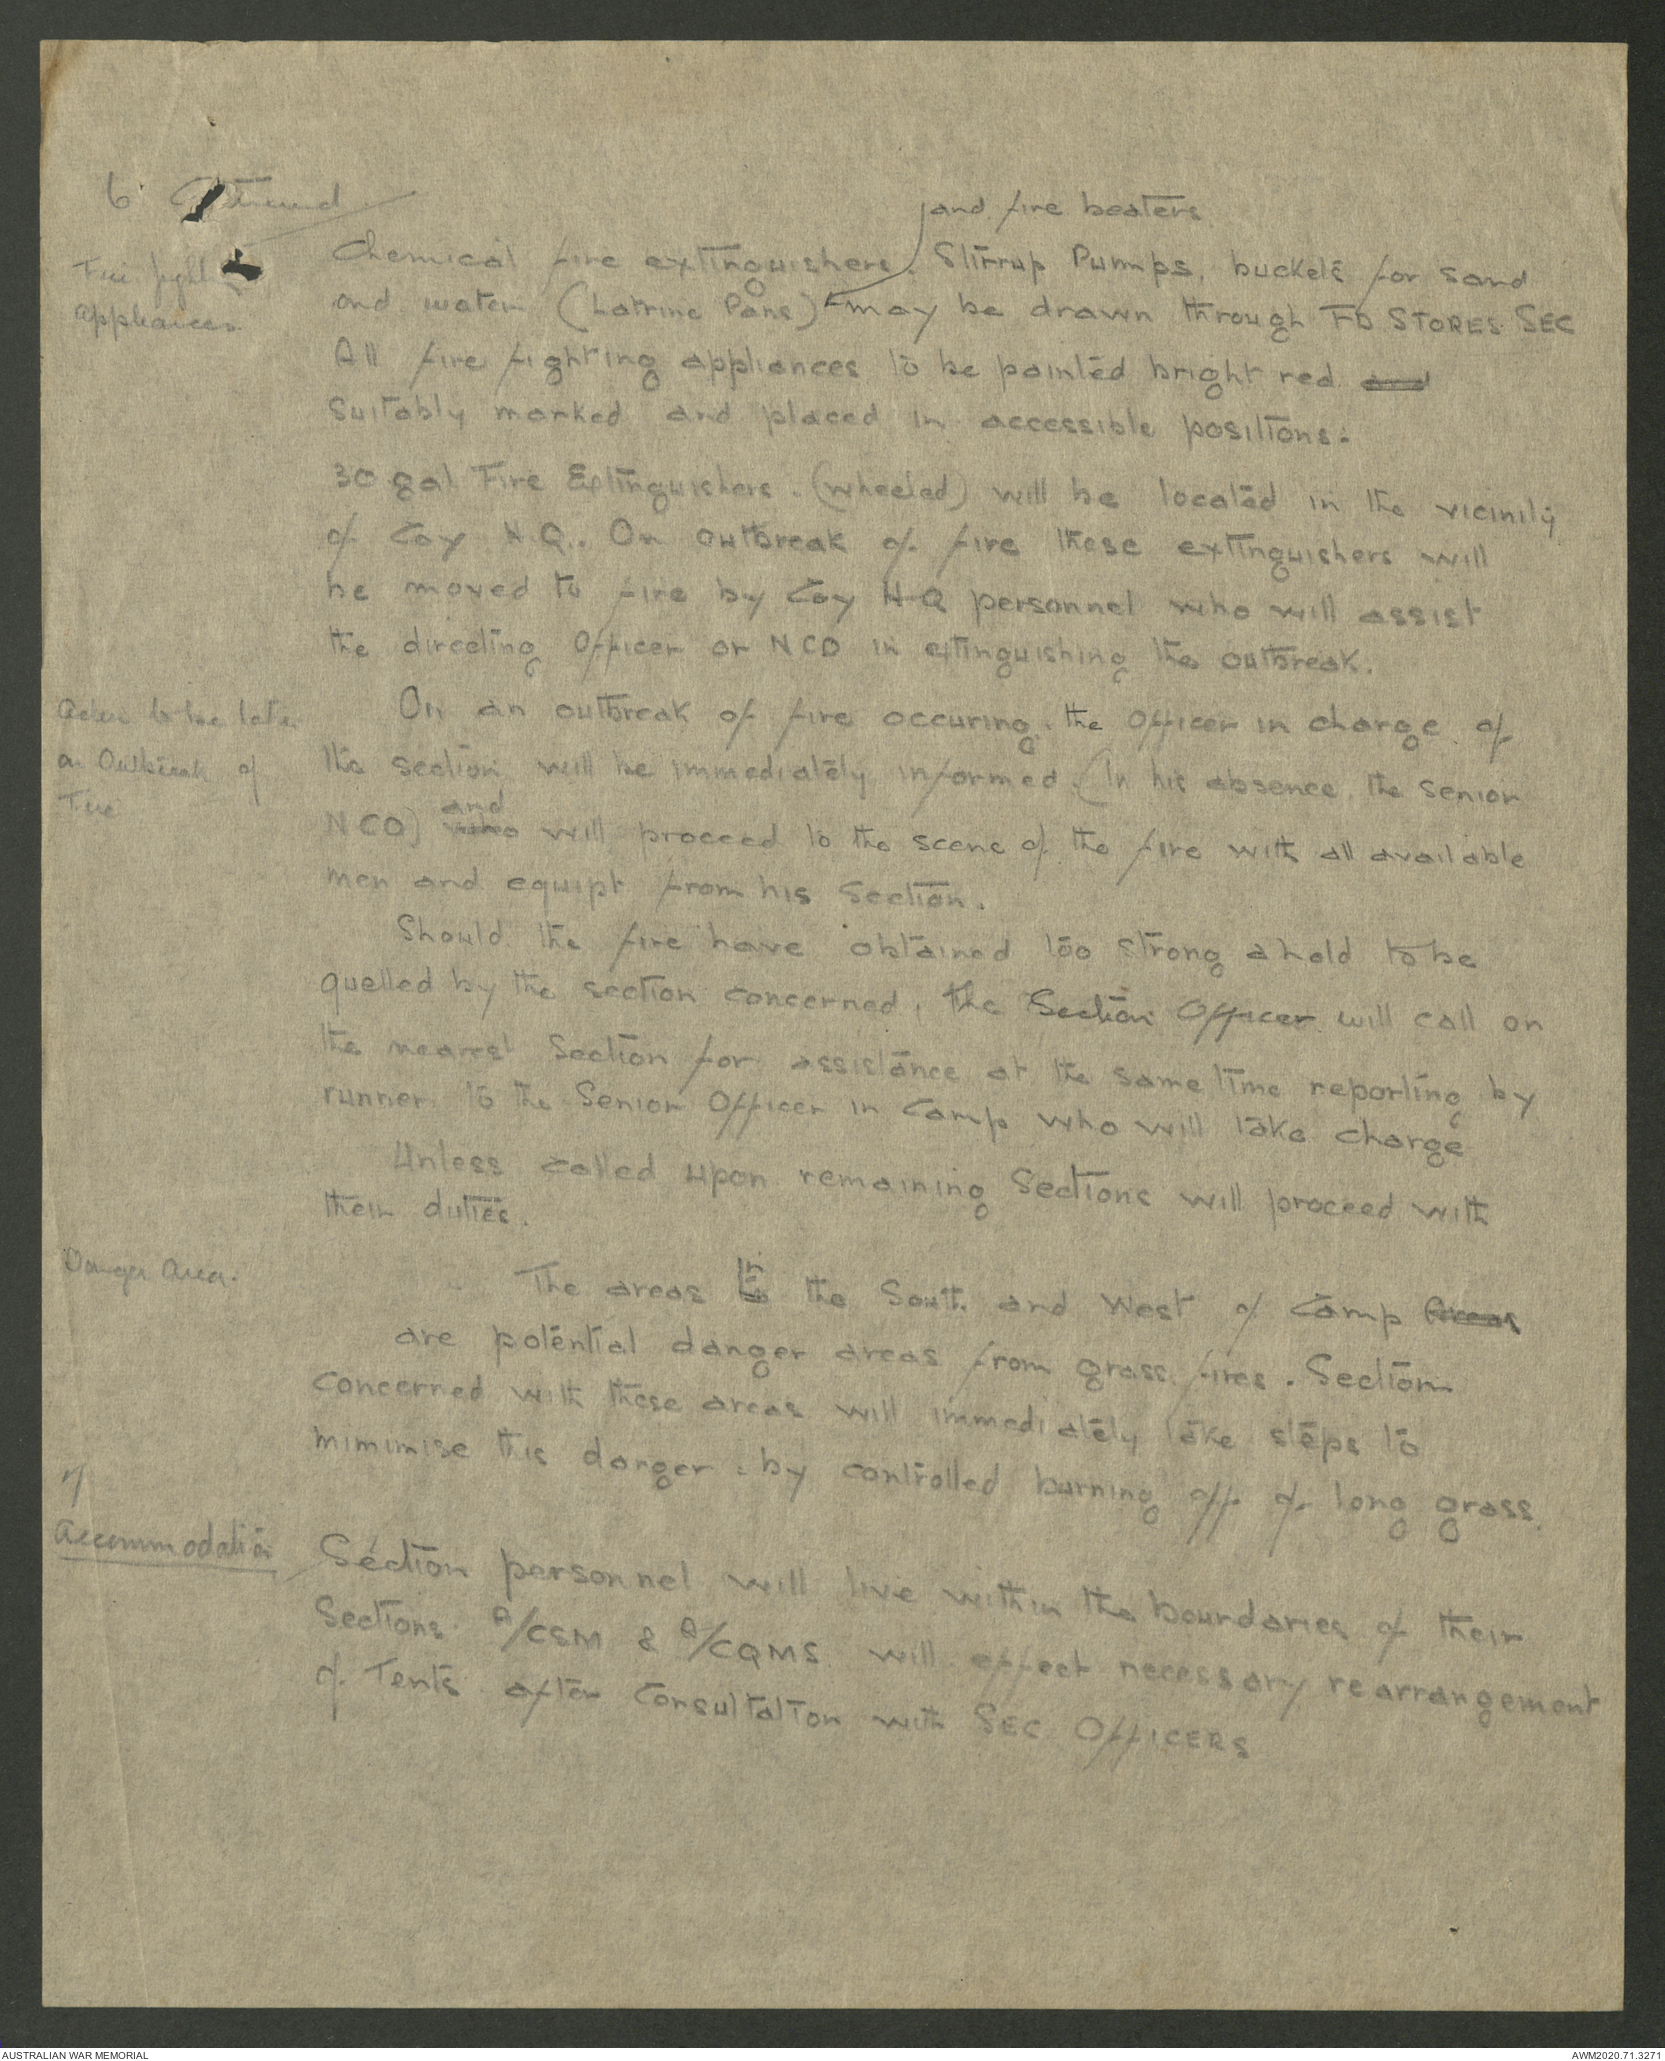 6.
and fire beaters
Fire fight
Appliances
Chemical fire extinguishers. Stirrup Pumps, buckets for sand
and water (Latrine Pans) may be drawn through FD STORES SEC
All fire fighting appliances to be painted bright red and
suitably marked and placed in accessible positions.
30 gal Fire Extinguishers (wheeled) will be located in the vicinity
of Coy H.Q. On outbreak of fire these extinguishers will
be moved to fire by Coy H Q personnel who will assist
the directing Officer or NCO in etinguishing the outbreak.
Action to be taken
on Outbreak of
Fire
On an outbreak of fire occuring, the Officer in charge of
the section will be immediately informed (In his absence, the senior
and
NCO) who will proceed to the scene of the fire with all available
men and equipt from his Section.
Should the fire have obtained too strong a hold to be
quelled by the section concerned, the Section Officer will call on
the nearest Section for assistance at the same time reporting by
runner to the Senior Officer in Camp who will take charge
Unless called upon remaining Sections will proceed with
their duties.
Danger Area.
The areas in the South and West of Camp Areas
are potential danger areas from grass fires. Section
concerned with these areas will immediately take steps to
mimimise this danger by controlled burning off of long grass.
7
Accommodation
Section personnel will live within the boundaries of their
Sections. A/CSM & A/CQMS will effect necessary rearrangement
of Tents after Consultation with SEC OFFICERS
AUSTRALIAN WAR MEMORIAL
AWM2020.71.3271